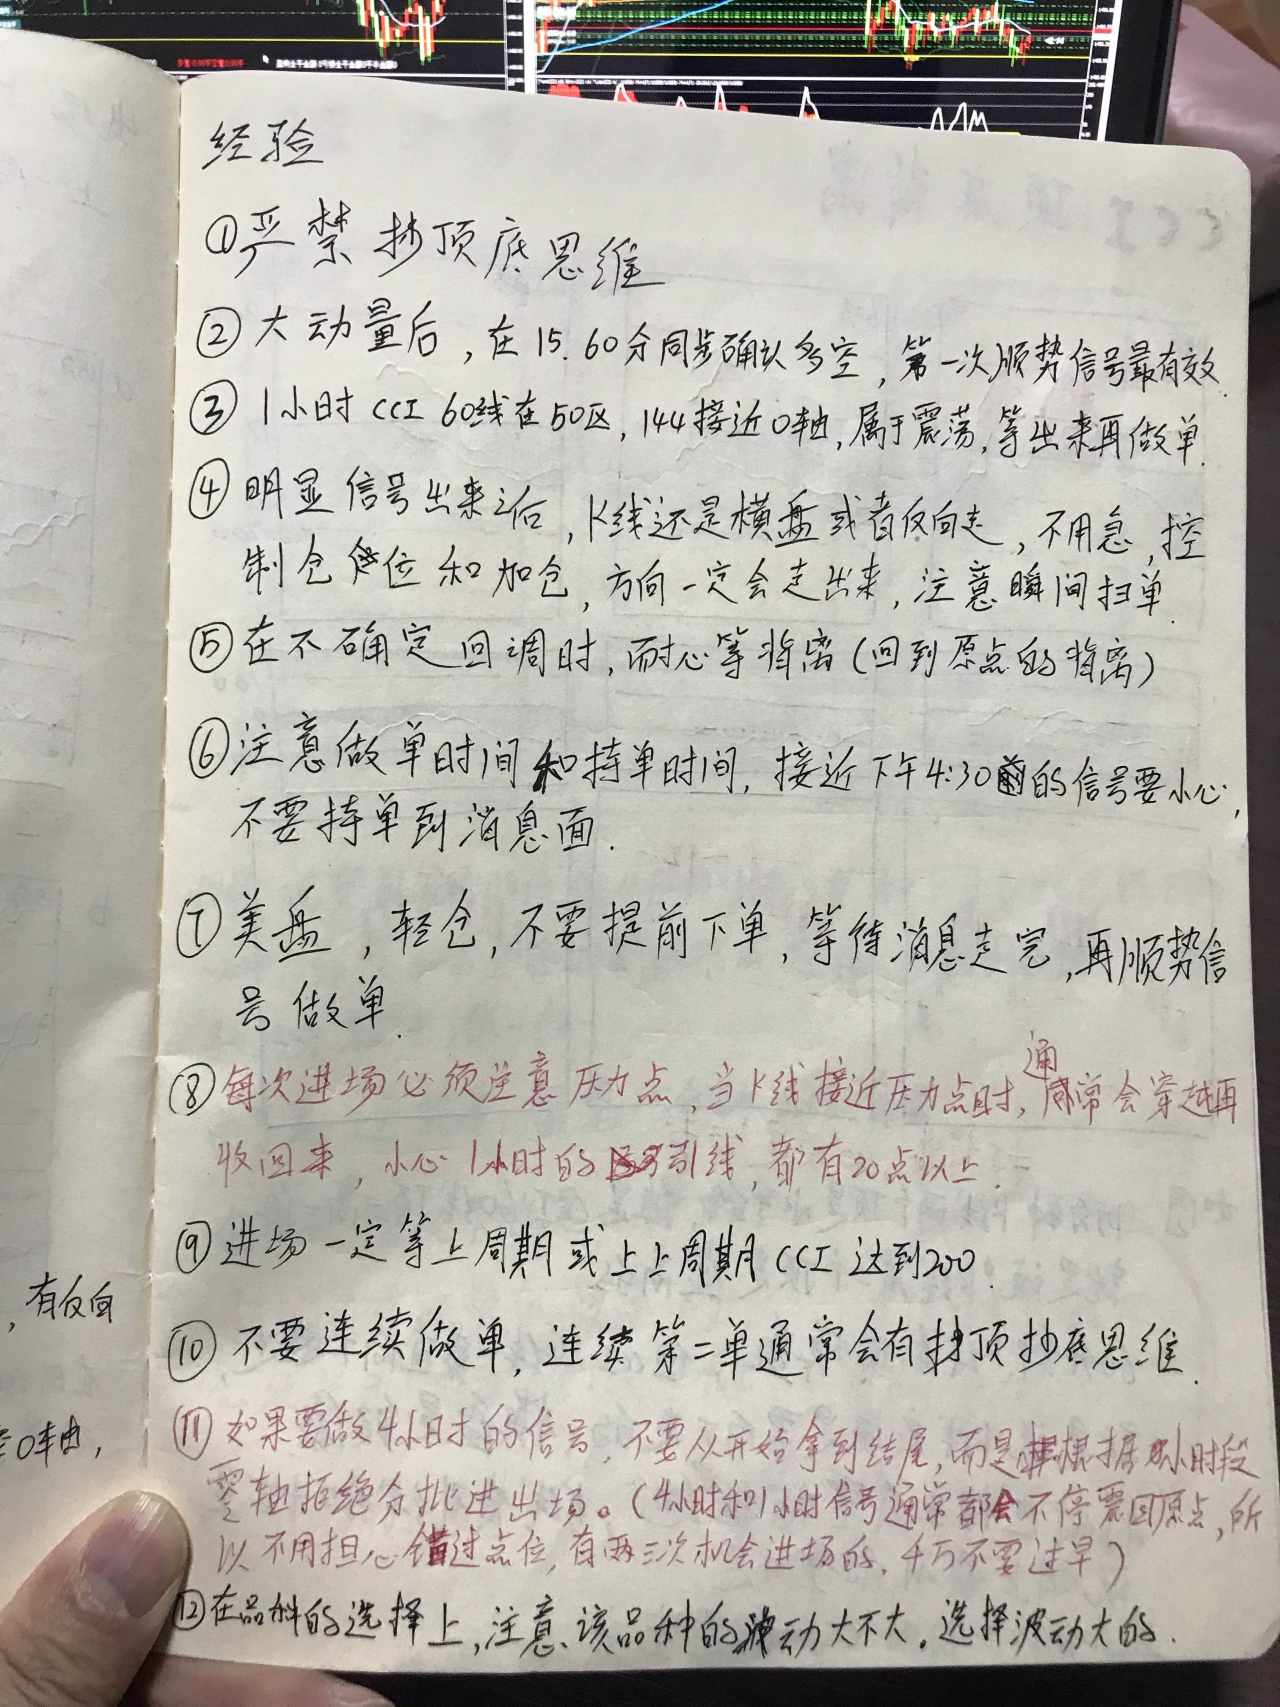 经验
①严禁抄顶底思维
②大动量后，在15.60分同步确认多空，第一次顺势信号最有效
③1小时CCI 60线在50区，144接近0轴，属于震荡，等出来再做单.
④明显信号出来之后，K线还是横盘或者反向走，不用急，控
制仓位和加仓，方向一定会走出来，注意瞬间扫单.
⑤在不确定回调时，耐心等背离（回到原点的背离）
⑥注意做单时间和持单时间，接近下午4:30前的信号要小心，
不要持单到消息面.
⑦美盘，轻仓，不要提前下单，等待消息走完，再顺势信
号做单.
⑧每次进场必须注意压力点，当K线接近压力点时，通常会穿越再
收回来，小心1小时的引线，都有20点以上.
⑨进场一定等上周期或上上周期CCI达到200.
⑩不要连续做单，连续第二单通常会有抄顶抄底思维.
⑪如果要做4小时的信号，不要从开始拿到结尾，而是根据小时段
零轴拒绝分批进出场。（4小时和1小时信号通常都会不停震回原点，所
以不用担心错过点位，有两三次机会进场的，千万不要过早）
⑫在品种的选择上，注意该品种的波动大不大。选择波动大的.
，有反向
0轴，